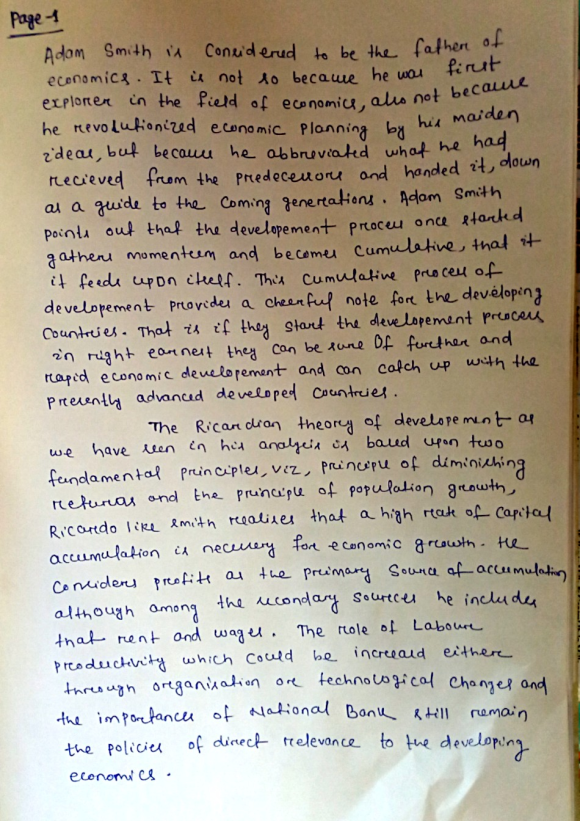 Page-1
Adam Smith is Considered to be the father of
economics. It is not so because he was first
explorer in the field of economics, also not because
he revolutionized economic planning by his maiden
ideas, but because he abbreviated what he had
recieved from the predecessors and handed it, down
as a guide to the Coming generations. Adam Smith
points out that the developement process once started
gathers momentum and becomes Cumulative, that it
it feeds upon itself. This Cumulative process of
developement provides a cheerful note for the developing
Countries. That is if they start the developement process
in right earnest they can be sure Of further and
rapid economic developement and can catch up with the
presently advanced developed Countries.
The Ricardian theory of developement as
we have seen in his analysis is based upon two
fundamental principles, viz, principle of diminishing
returns and the principle of population growth,
Ricardo like smith realises that a high rate of Capital
accumulation is necessery for economic growth. He
Considers profits as the primary Source of accumulation
although among the secondary sources he includes
that rent and wages. The role of Labour
productivity which Could be increased either
through organisation or technological Changes and
the importances of National Bank still remain
the policies of direct relevance to the developing
economics.